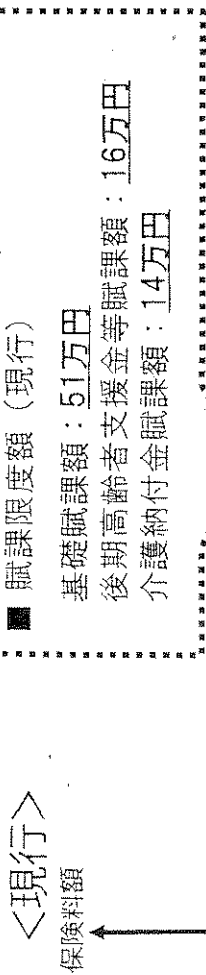 ＜現行＞
保険料額
■ 賦課限度額（現行）
基礎賦課額：51万円
後期高齢者支援金等賦課額：16万円
介護納付金賦課額：14万円